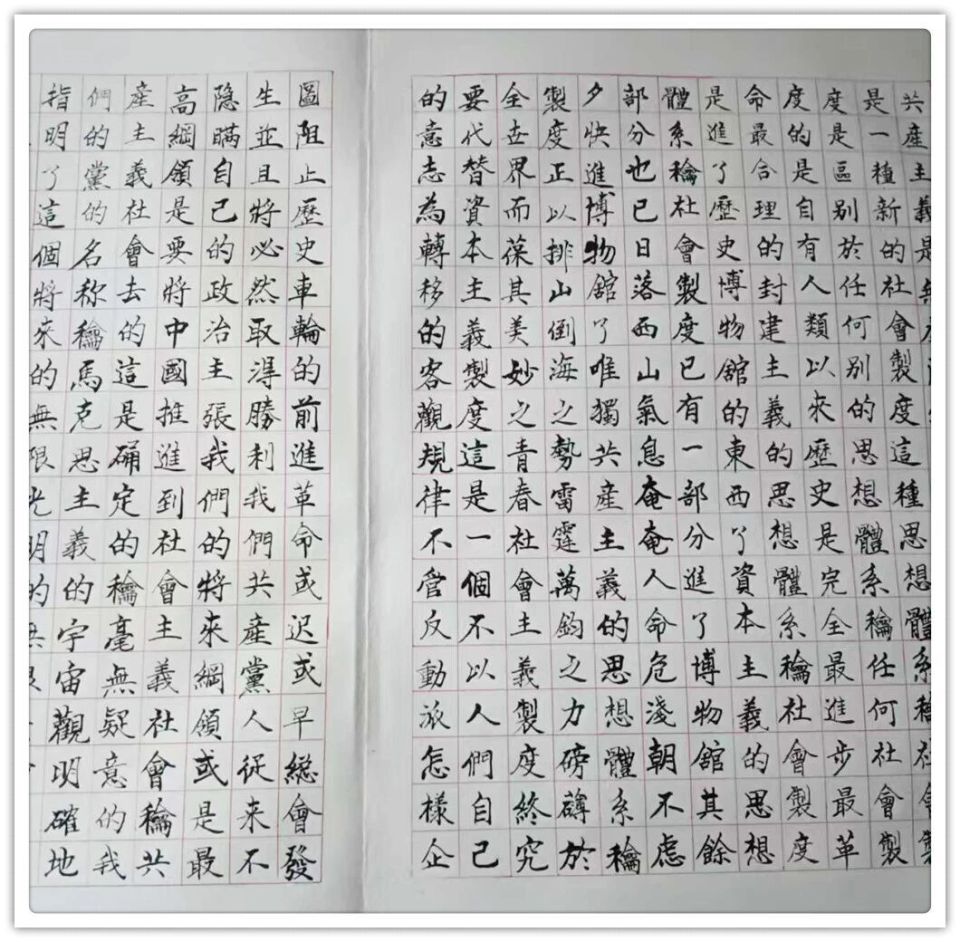 共産主義是
是一種新的社會製度這種思想體系龢社會製
度是區別於任何別的思想體系龢任何社會製
度的是自有人類以來歷史是完全最進步最革
命最合理的封建主義的思想體系龢社會製度
是進了歷史博物舘的東西了資本主義的思想
體系龢社會製度已有一部分進了博物舘其餘
部分也已日落西山氣息奄奄人命危淺朝不慮
夕快進博物舘了唯獨共産主義的思想體系龢
製度正以排山倒海之勢雷霆萬鈞之力磅礴於
全世界而葆其美妙之青春社會主義製度終究
要代替資本主義製度這是一個不以人們自己
的意志為轉移的客觀規律不管反動派怎樣企
圖阻止歷史車輪的前進革命或迟或早總會發
生並且將必然取得勝利我們共産黨人從来不
隐瞞自己的政治主張我們的將來綱領或是最
高綱領是要將中國推進到社會主義社會龢共
産主義社會去的這是确定的龢毫無疑意的我
們的黨的名称龢馬克思主義的宇宙觀明確地
指明了這個將來的無限光明的無